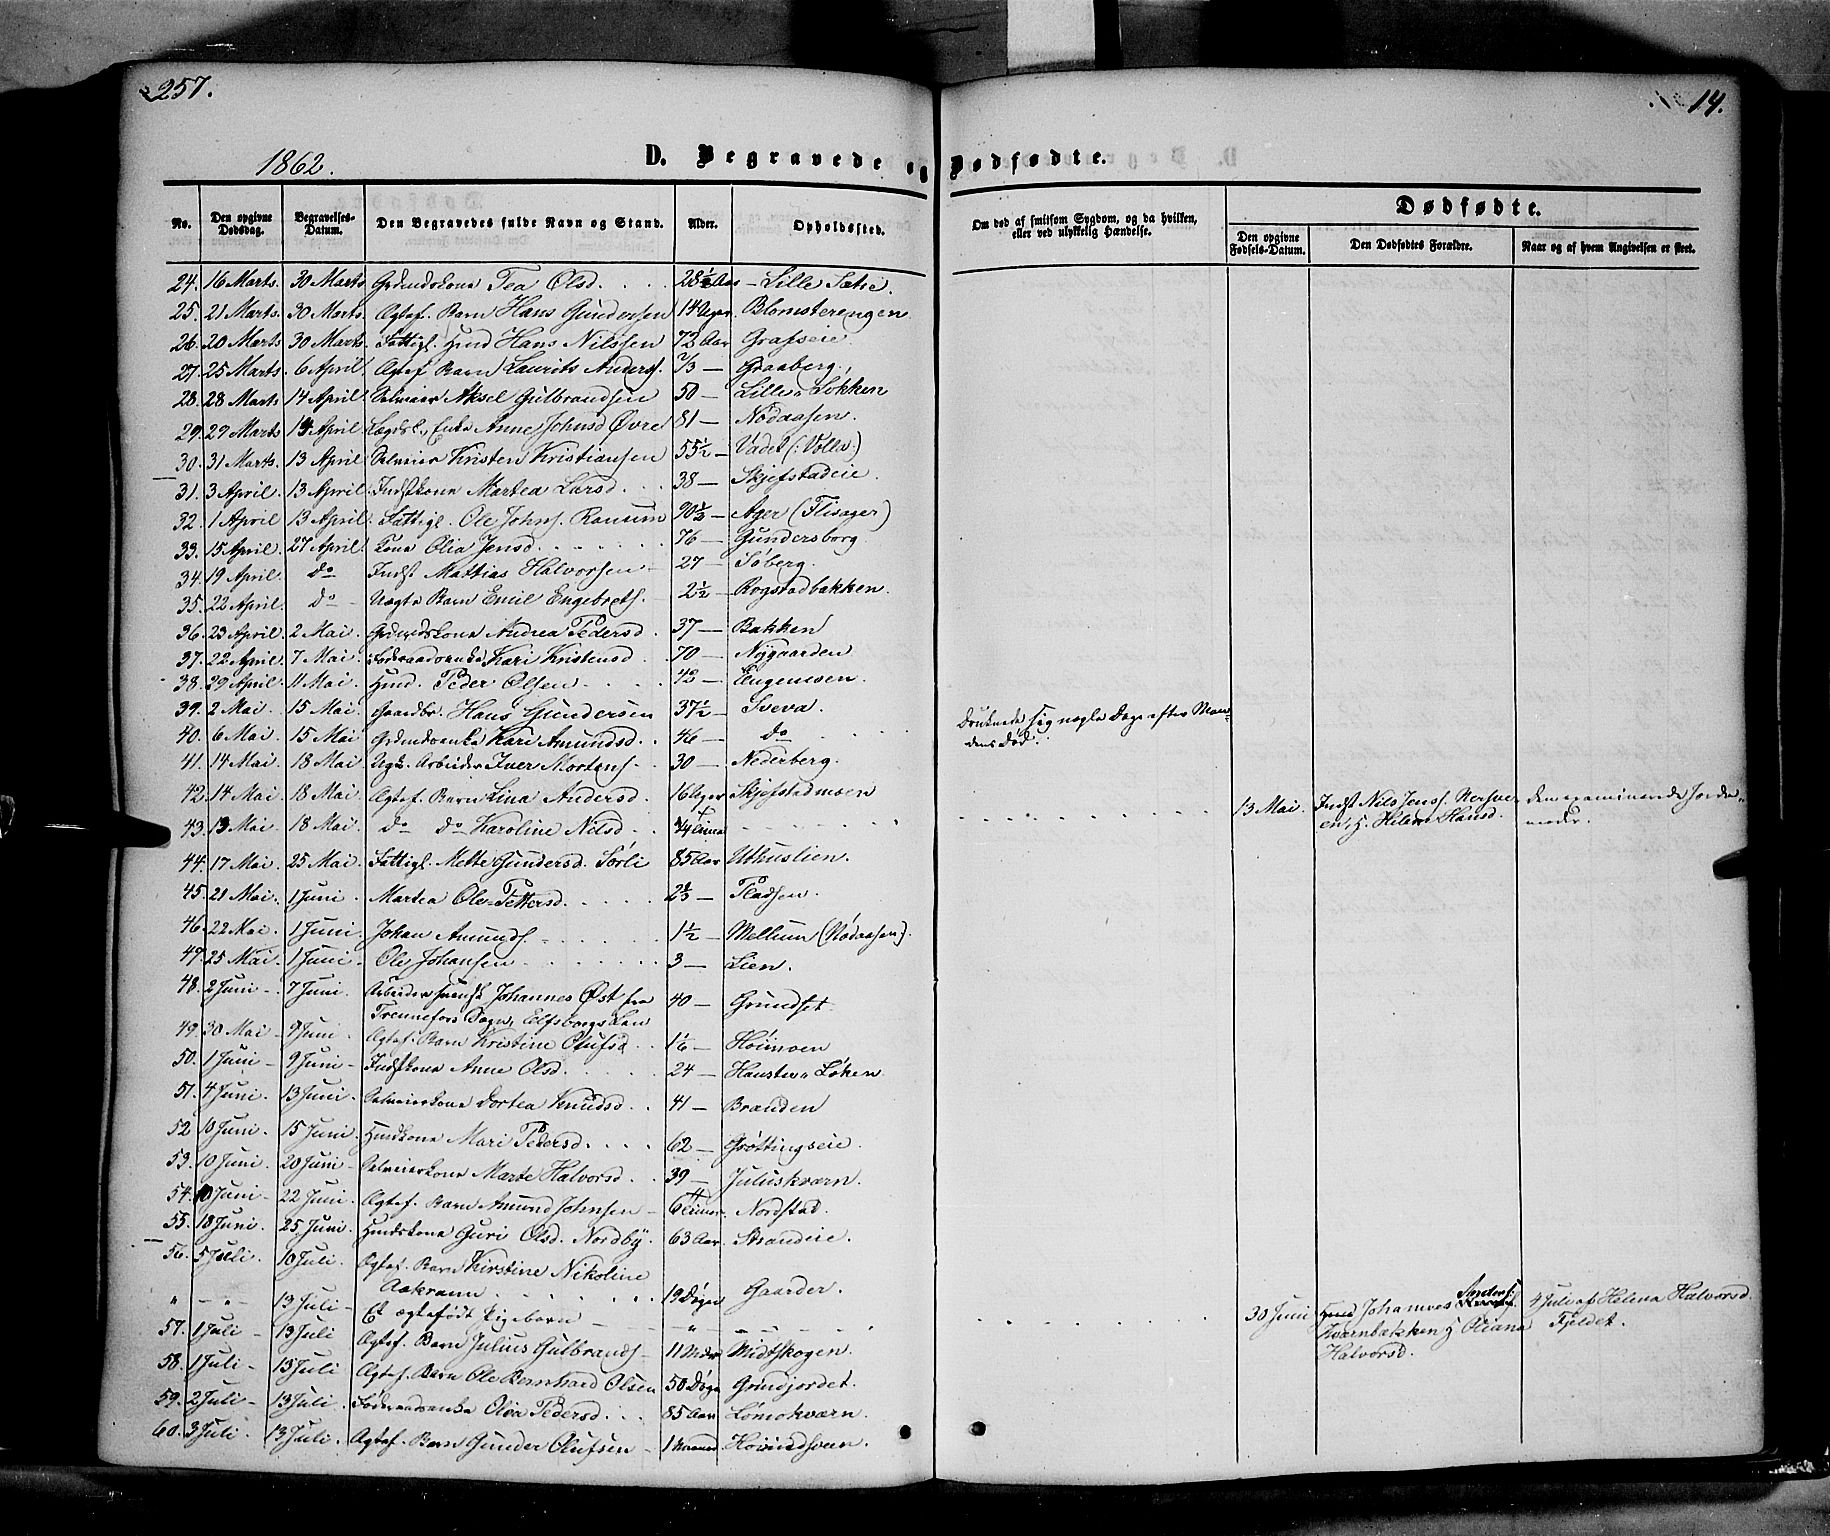 257.
14.
1862.
D. Begravede og Dødfødte.
No.
Den opgivne Dødsdag.
Begravelses-Datum.
Den Begravedes fulde Navn og Stand.
Alder.
Opholdssted.
Om død af smitsom Sygdom, og da hvilken, eller ved ulykkelig Hændelse.
Dødfødte.
Den opgivne Fødsels-Datum.
Den Dødfødtes Forældre.
Naar og af hvem Angivelsen er skeet.
24. 16 Marts. 30 Marts Grdmdskone Tea Olsd. 28½ Aar - Lille Sætre.
25. 21 Marts. 30 Marts. Ægtef. Barn Hans Gundersen 14 Uger. Blomsterengen
26. 20 Marts 30 Marts. Fattigl. Husd Hans Nilssen 72 Aar Grafseie.
27. 25 Marts. 6 April Ægtef. Barn Laurits Andersf. 2/3 — Graaberg.
28. 28 Marts 14 April Selveier Aksel Gulbrandsen 50 — Lille Løkken
29. 29 Marts 14 April Lægdsl. Enke Anne Johnsd Øvre 81 — Nødaasen.
30. 31 Marts. 13 April Selveier Kristen Kristiansen 55½ — Vadet (: Volla:)
31. 3 April. 13 April. Indstkone Martea Larsd. 38 — Skjefstadeie.
32. 1 April 13 April. Fattigl. Ole Johns. Ranum 90½ — Ager (Flisager)
33. 15 April. 27 April. Kone Olia Jensd. 76 — Gundersborg
34. 19 April. do Indst Mattias Halvorsen 27 — Søberg.
35. 22 April. do Uægte Barn Emil Engebrets. 2½ — Rogstadbakken.
36. 23 April. 2 Mai. Grdmdskone Andrea Pedersd. 37 — Bakken
37. 22 April. 7 Mai. Føderaadsenke Kari Kristensd. 70 — Nygaarden
38. 29 April. 11 Mai. Husd. Peder Olsen 42 — Engemoen.
39. 2 Mai. 15 Mai. Gaardbr. Hans Gundersen 37½ — Sveva.
40. 6 Mai. 15 Mai Grdmdsenke Kari Amundsd. 46 — do Druknede sig nogle Dage efter Mandens Død.
41. 14 Mai. 18 Mai. Ugk. Arbeider Iver Mortens. 30 — Nederberg.
42. 14 Mai. 18 Mai. Ægtef. Barn Lina Andersd. 16 Uger Skjefstadmoen
43. 13 Mai. 18 Mai. do do Karoline Nilsd. ¼ Time 13 Mai. Indst Nils Jenss. Helene Hansd. den examinerede Jordemoder.
44. 17 Mai. 25 Mai. Fattigl. Mette Gundersd. Sørli 85 Aar Uthuslien.
45. 21 Mai. 1 Juni. Martea Ole-Pettersd. 2⅔ — Pladsen.
46. 22 Mai. 1 Juni. Johan Amunds. 1½ — Mellum (Nødaasen).
47. 25 Mai. 1 Juni. Ole Johansen 3 — Lien.
48. 2 Juni. 7 Juni. Arbeider svensk Johannes Øst fra Trennefors Sogn, Elfsborgs Län 40 — Grundset
49. 30 Mai 9 Juni. Ægtef. Barn Kristine Olufsd. 1⅙ — Høimoen
50. 1 Juni 9 Juni Indstkone Anne Olsd. 24 — Løken.
51. 4 Juni. 13 Juni. Selveierkone Dortea Knudsd. 41 — Branden
52 10 Juni. 15 Juni. Husdkone Mari Pedersd. 62 — Grøttingseie.
53. 10 Juni. 20 Juni Selveierkone Marte Halvorsd. 39 — Juluskværn.
54. 10 Juni 22 Juni. Ægtef. Barn Amund Johnsen 6 Timer. Nordstad.
55. 18 Juni. 25 Juni. Husdskone Guri Olsd. Nordby. 63 Aar. Strandeie.
56. 5 Juli. 10 Juli. Ægtef. Barn Kirstine Nikoline Aakrann 19 Døgn Gaarder.
" — " — 13 Juli Et ægtefødt Pigebarn — " — 30 Juni Husd Johannes Anders. Kværnbækken & Oliana Halvorsd. 4 Juli af Helena Halvorsd. Fjeldet.
57. 1 Juli 13 Juli Ægtef. Barn Julius Gulbrands. 11 Mdr Midtskogen.
58. 1 Juli 13 Juli Ægtef. Barn Ole Bernhard Olsen 50 Døgn Grindjordet.
59. 2 Juli 13 Juli. Føderaadsenke Olea Pedersd. 85 Aar Lømokværn.
60. 3 Juli. 13 Juli. Ægtef. Barn Gunder Olufsen 1 Maaned